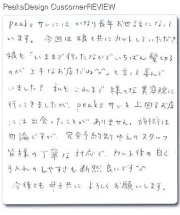 PeaksDesign CustomerREVIEW
peaksサンにはかなり長年お世話になって
います。今回は娘と共にカットしていただき
娘も「いままで行ったなかでいちばん髪きるの
が上手なお店だね♡」と言って喜んで
いました♪私もこれまで様々な美容院に
行ってきましたが、peaksサン上回るお店
には出会ったことがありません。技術は
勿論ですが、完全予約制ゆえのスタッフ
皆様の丁寧な対応で、カット後の自己
手入れのしやすさも断然良いです♡
今後も母子共によろしくお願いします。